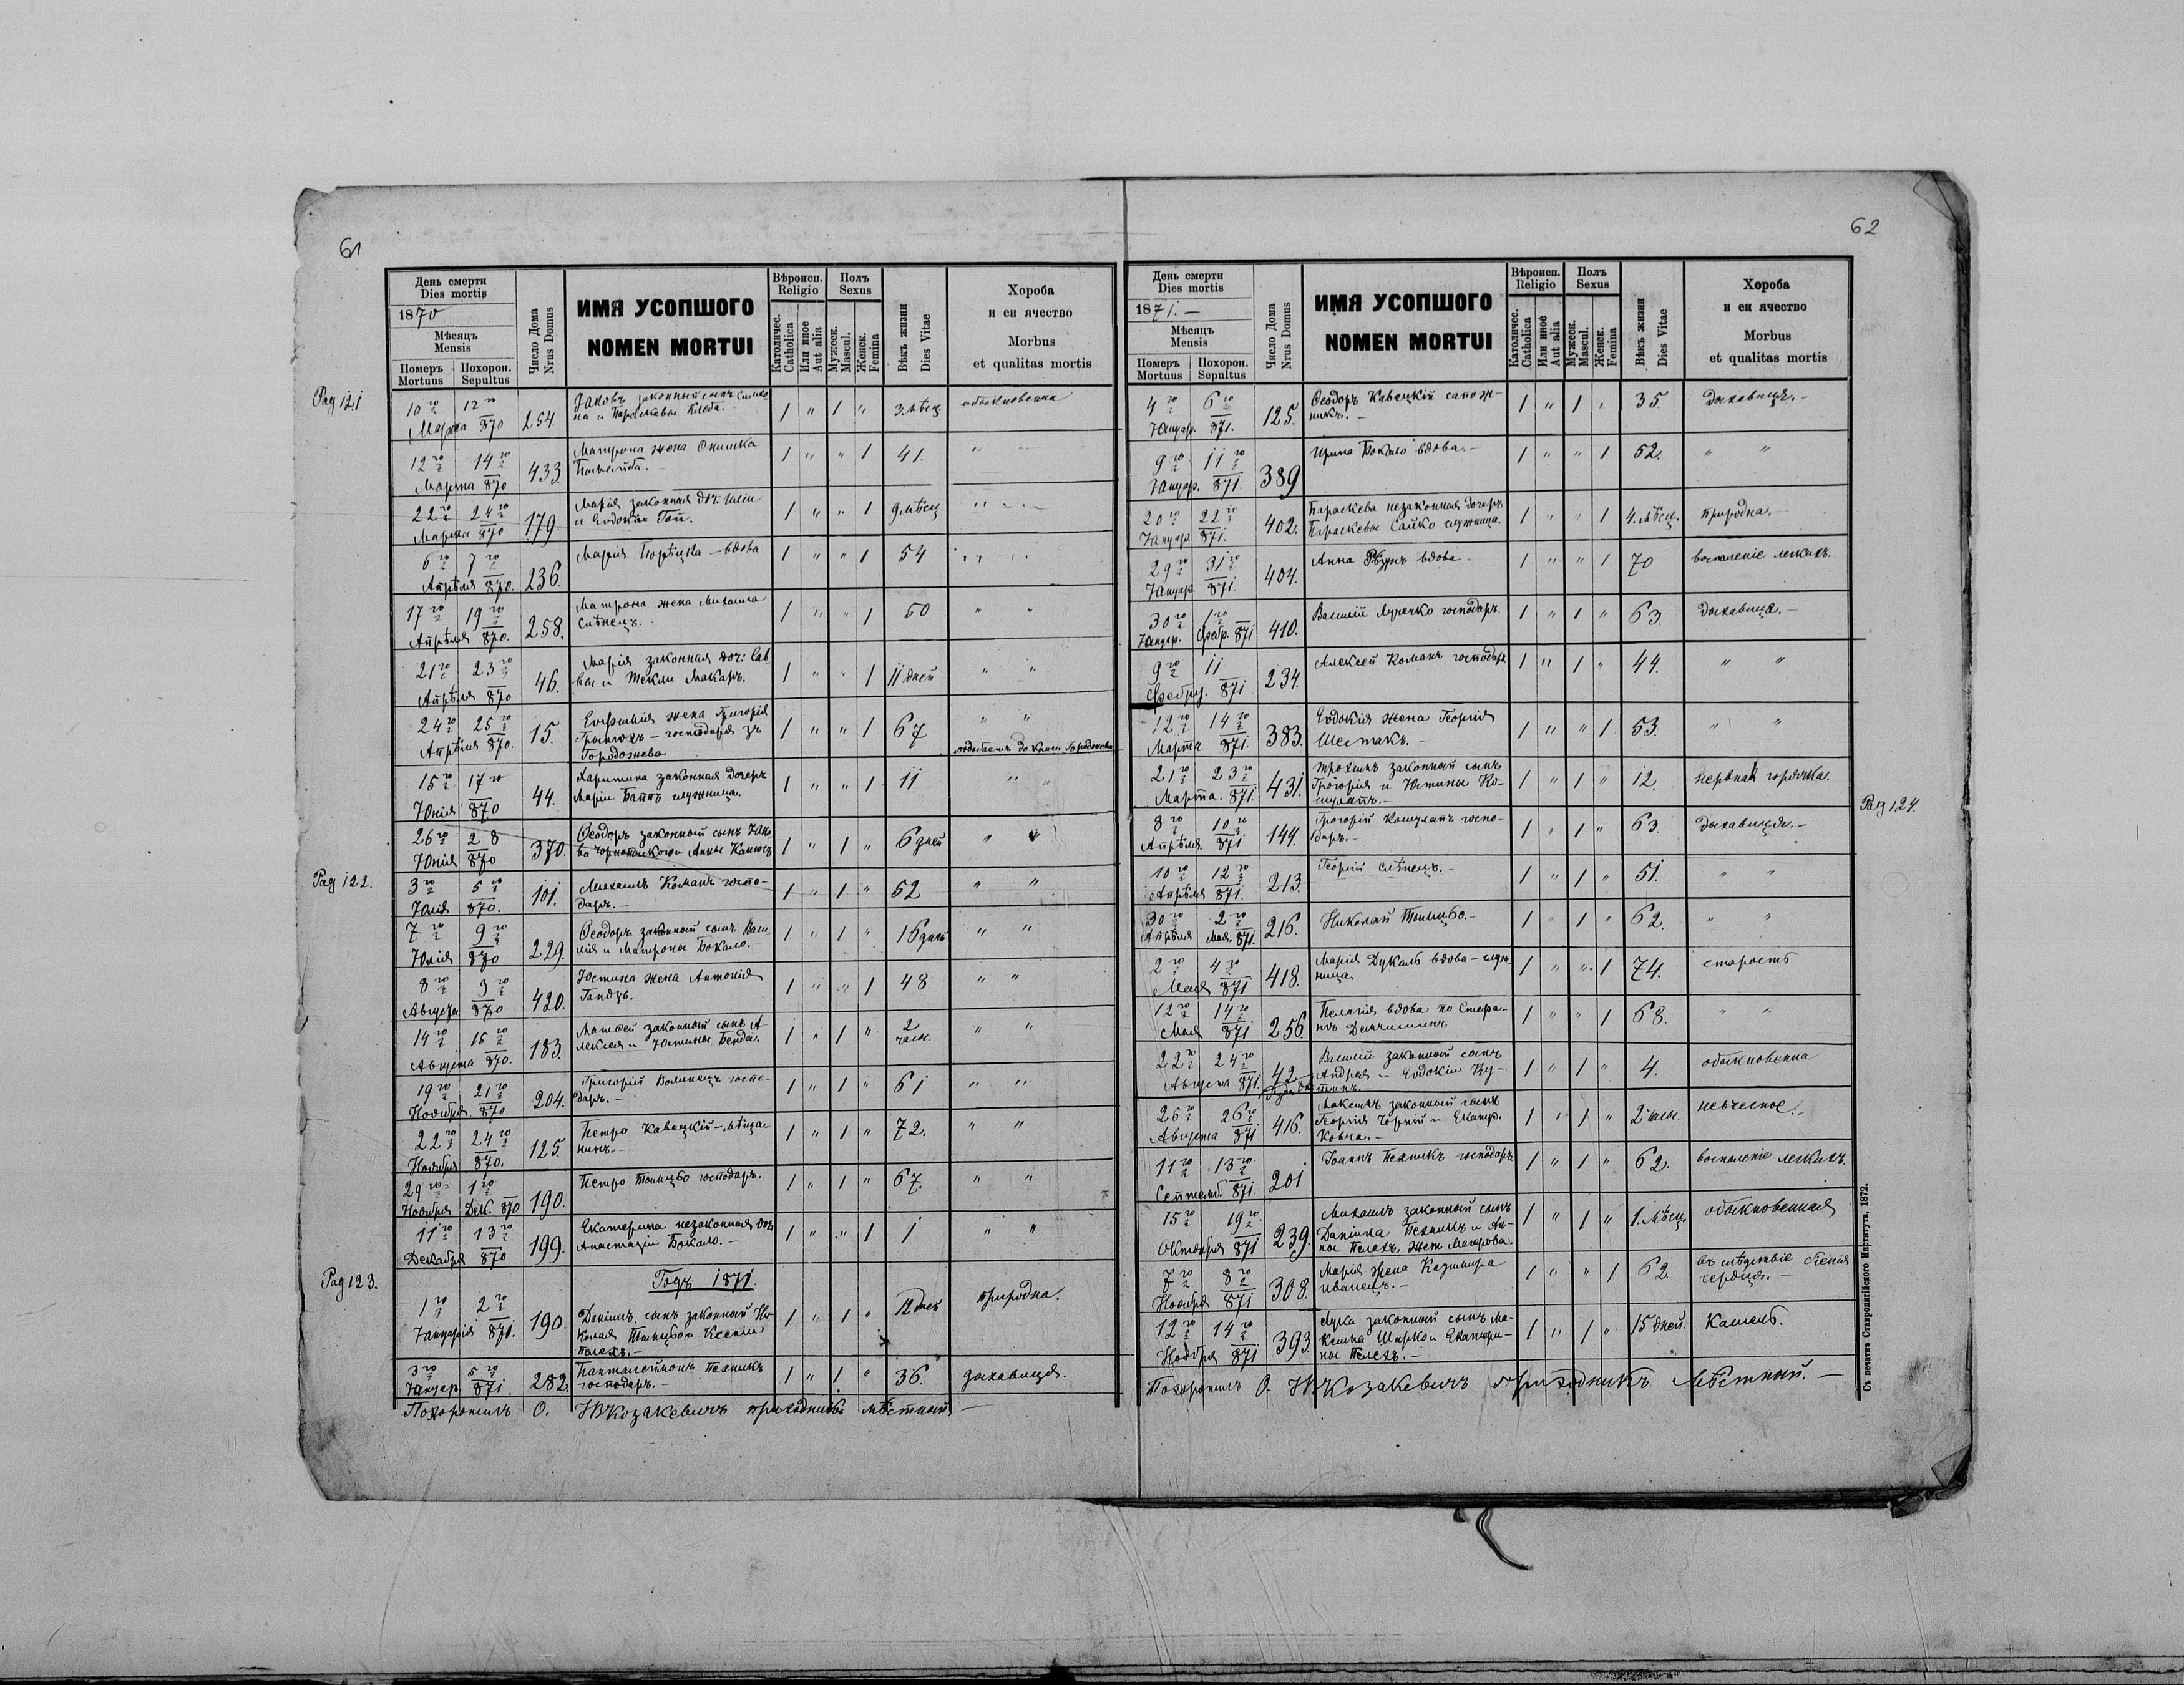 61
День смерти
Dies mortis
1870
Мѣсяцъ
Mensis
Померъ Похорон.
Mortuus Sepultus
Число Дома
Nrus Domus
ИМЯ УСОПШОГО
NOMEN MORTUI
Вѣроисп.
Religio
Католичес.
Catholica
Или иное
Aut alia
Полъ
Sexus
Мужеск.
Mascul.
Женск.
Femina
Вѣкъ жизни
Dies Vitae
Хороба
и еи ячество
Morbus
et qualitas mortis
Pag 121
10го 12го 254. Яковъ законный сынъ Симео- 1 " 1 " 3. мѣсц обыкновенна
Марта 870 на и Параскевы
12го 14го 433. Матрона жена Онишка 1 " " 1 41. " "
Марта 870
22го 24го 179 Марія законная доч: Иліи 1 " " 1 9 мѣсц " "
Марта 870 и Евдокіи Гой.
6го 7го 236. Марія вдова 1 " " 1 54 " "
Апрѣля 870.
17го 19го 258. Матрона жена Михаила 1 " " 1 50 " "
Апрѣля 870. слѣпецъ.
21го 23го 46. Марія законная доч: Сав- 1 " " 1 11 дней " "
Апрѣля 870 вы и Теклы Макаръ.
24го 25го 15. Евфимія жена Григорія 1 " " 1 67 " "
Апрѣля 870. господаря зъ
Городожева
15го 17го 44. Харитина законная дочерь 1 " " 1 11 " "
Юнія 870 Маріи служница.
26го 28 370. Ѳеодоръ законный сынъ Яко- 1 " 1 " 6 дней " "
Юнія 870 ва и Анны
Pag 122.
3го 5го 101. Михаилъ Команъ госпо- 1 " 1 " 52 " "
Юлія 870. даръ.—
7го 9го 229. Ѳеодоръ законный сынъ Васи- 1 " 1 " 16 дней " "
Юлія 870 лія и Матроны Бокало.—
8го 9го 420. Юстина жена Антонія 1 " " 1 48 " "
Августа 870
14го 16го 183. Матѳей законный сынъ А- 1 " 1 " 2 " "
Августа 870. лексея и Юстины Бенда. часы.
19го 21го 204. Григорій Волинецъ госпо- 1 " 1 " 61 " "
Ноября 870 даръ.—
22го 24го 125. Петро Кавецкій – мѣща- 1 " 1 " 72. " "
Ноября 870. нинъ.—
29го 1го 190. Петро господаръ. 1 " 1 " 67. " "
Ноября Дек. 870
11го 13го 199. Екатерина незаконная доч. 1 " " 1 1 " "
Декабря 870 Анастазіи Бокало.—
Pag 123.
Годъ 1871.
1го 2го 190. Даніилъ сынъ законный Ни- 1 " 1 " 12 дней природна.
Януарія 871. колая и Ксеніи
Пелехъ.—
3го 5го 282. Пантелеймонъ Пехникъ 1 " 1 " 36. дихавиця.
Януар. 871. господаръ.—
Похоронилъ О. Козакевичъ приходникъ мѣстный —
62
День смерти
Dies mortis
1871.—
Мѣсяцъ
Mensis
Померъ Похорон.
Mortuus Sepultus
Число Дома
Nrus Domus
ИМЯ УСОПШОГО
NOMEN MORTUI
Вѣроисп.
Religio
Католичес.
Catholica
Или иное
Aut alia
Полъ
Sexus
Мужеск.
Mascul.
Женск.
Femina
Вѣкъ жизни
Dies Vitae
Хороба
и еи ячество
Morbus
et qualitas mortis
4го 6го 125. Ѳеодоръ Кавецкій сапож- 1 " 1 " 35. дихавиця.—
Януар. 871. никъ.—
9го 11го 389 Ирина Бокало вдова.— 1 " " 1 52. " "
Януар. 871.
20го 22го 402. Параскева незаконная дочерь 1 " " 1 4. мѣсц. природна.—
Януар. 871. Параскевы Сайко служница.
29го 31го 404. Анна вдова. 1 " " 1 70 воспаленіе легкихъ.
Януар. 871.
30го 1го 410. Василій Луречко господаръ. 1 " 1 " 63. дихавиця.—
Януар. Февр. 871
9го 11 234. Алексей Команъ господаръ 1 " 1 " 44. " "
Февру. 871
12го 14го 383. Евдокія жена Георгія 1 " " 1 53. " "
Марта 871. Шестакъ.—
21го 23го 431. законный сынъ 1 " 1 " 12. нервная горячка.
Марта. 871. Григорія и Юстины Ко-
Pag 124.
8го 10го 144. Григорій госпо- 1 " 1 " 63. дихавиця.—
Апрѣля. 871 даръ.—
10го 12го 213. Георгій слѣпецъ.— 1 " 1 " 51. " "
Апрѣля 871.
30го 2го 216. Николай 1 " 1 " 62. " "
Апрѣля Мая. 871.
2 4го 418. Марія Дукаль вдова – служ- 1 " " 1 74. старость
Мая 871 ница.
12го 14го 256. Пелагія вдова по Стефа- 1 " " 1 68. " "
Мая 871
22го 24го 42 Василій законный сынъ 1 " 1 " 4. обыкновенна
Августа 871. Андрея и Евдокіи Ку-
25го 26го 416. Максимъ законный сынъ 1 " 1 " 2 часы.
Августа 871 Георгія Чорній и Екатер.
11го 13го 201 Іоаннъ Пехникъ господаръ 1 " 1 " 62. воспаленіе легкихъ.
Септемб. 871.
15го 19го 239. Михаилъ законный сынъ 1 " 1 " 1. мѣсц. обыкновенная
Октября 871 Даніила Пехникъ и Ан-
ны Пелехъ.
7го 8го 308. Марія жена Казимира 1 " " 1 62
Ноября 871 иванецъ.—
12го 14го 393. Лука законный сынъ Ма- 1 " 1 " 15 дней. Кашель.
Ноября 871 ксима Шарко и Екатери-
ны Пелехъ.—
Похоронилъ О. Козакевичъ приходникъ мѣстный.—
Съ печатнѣ Ставропигійского Института, 1872.